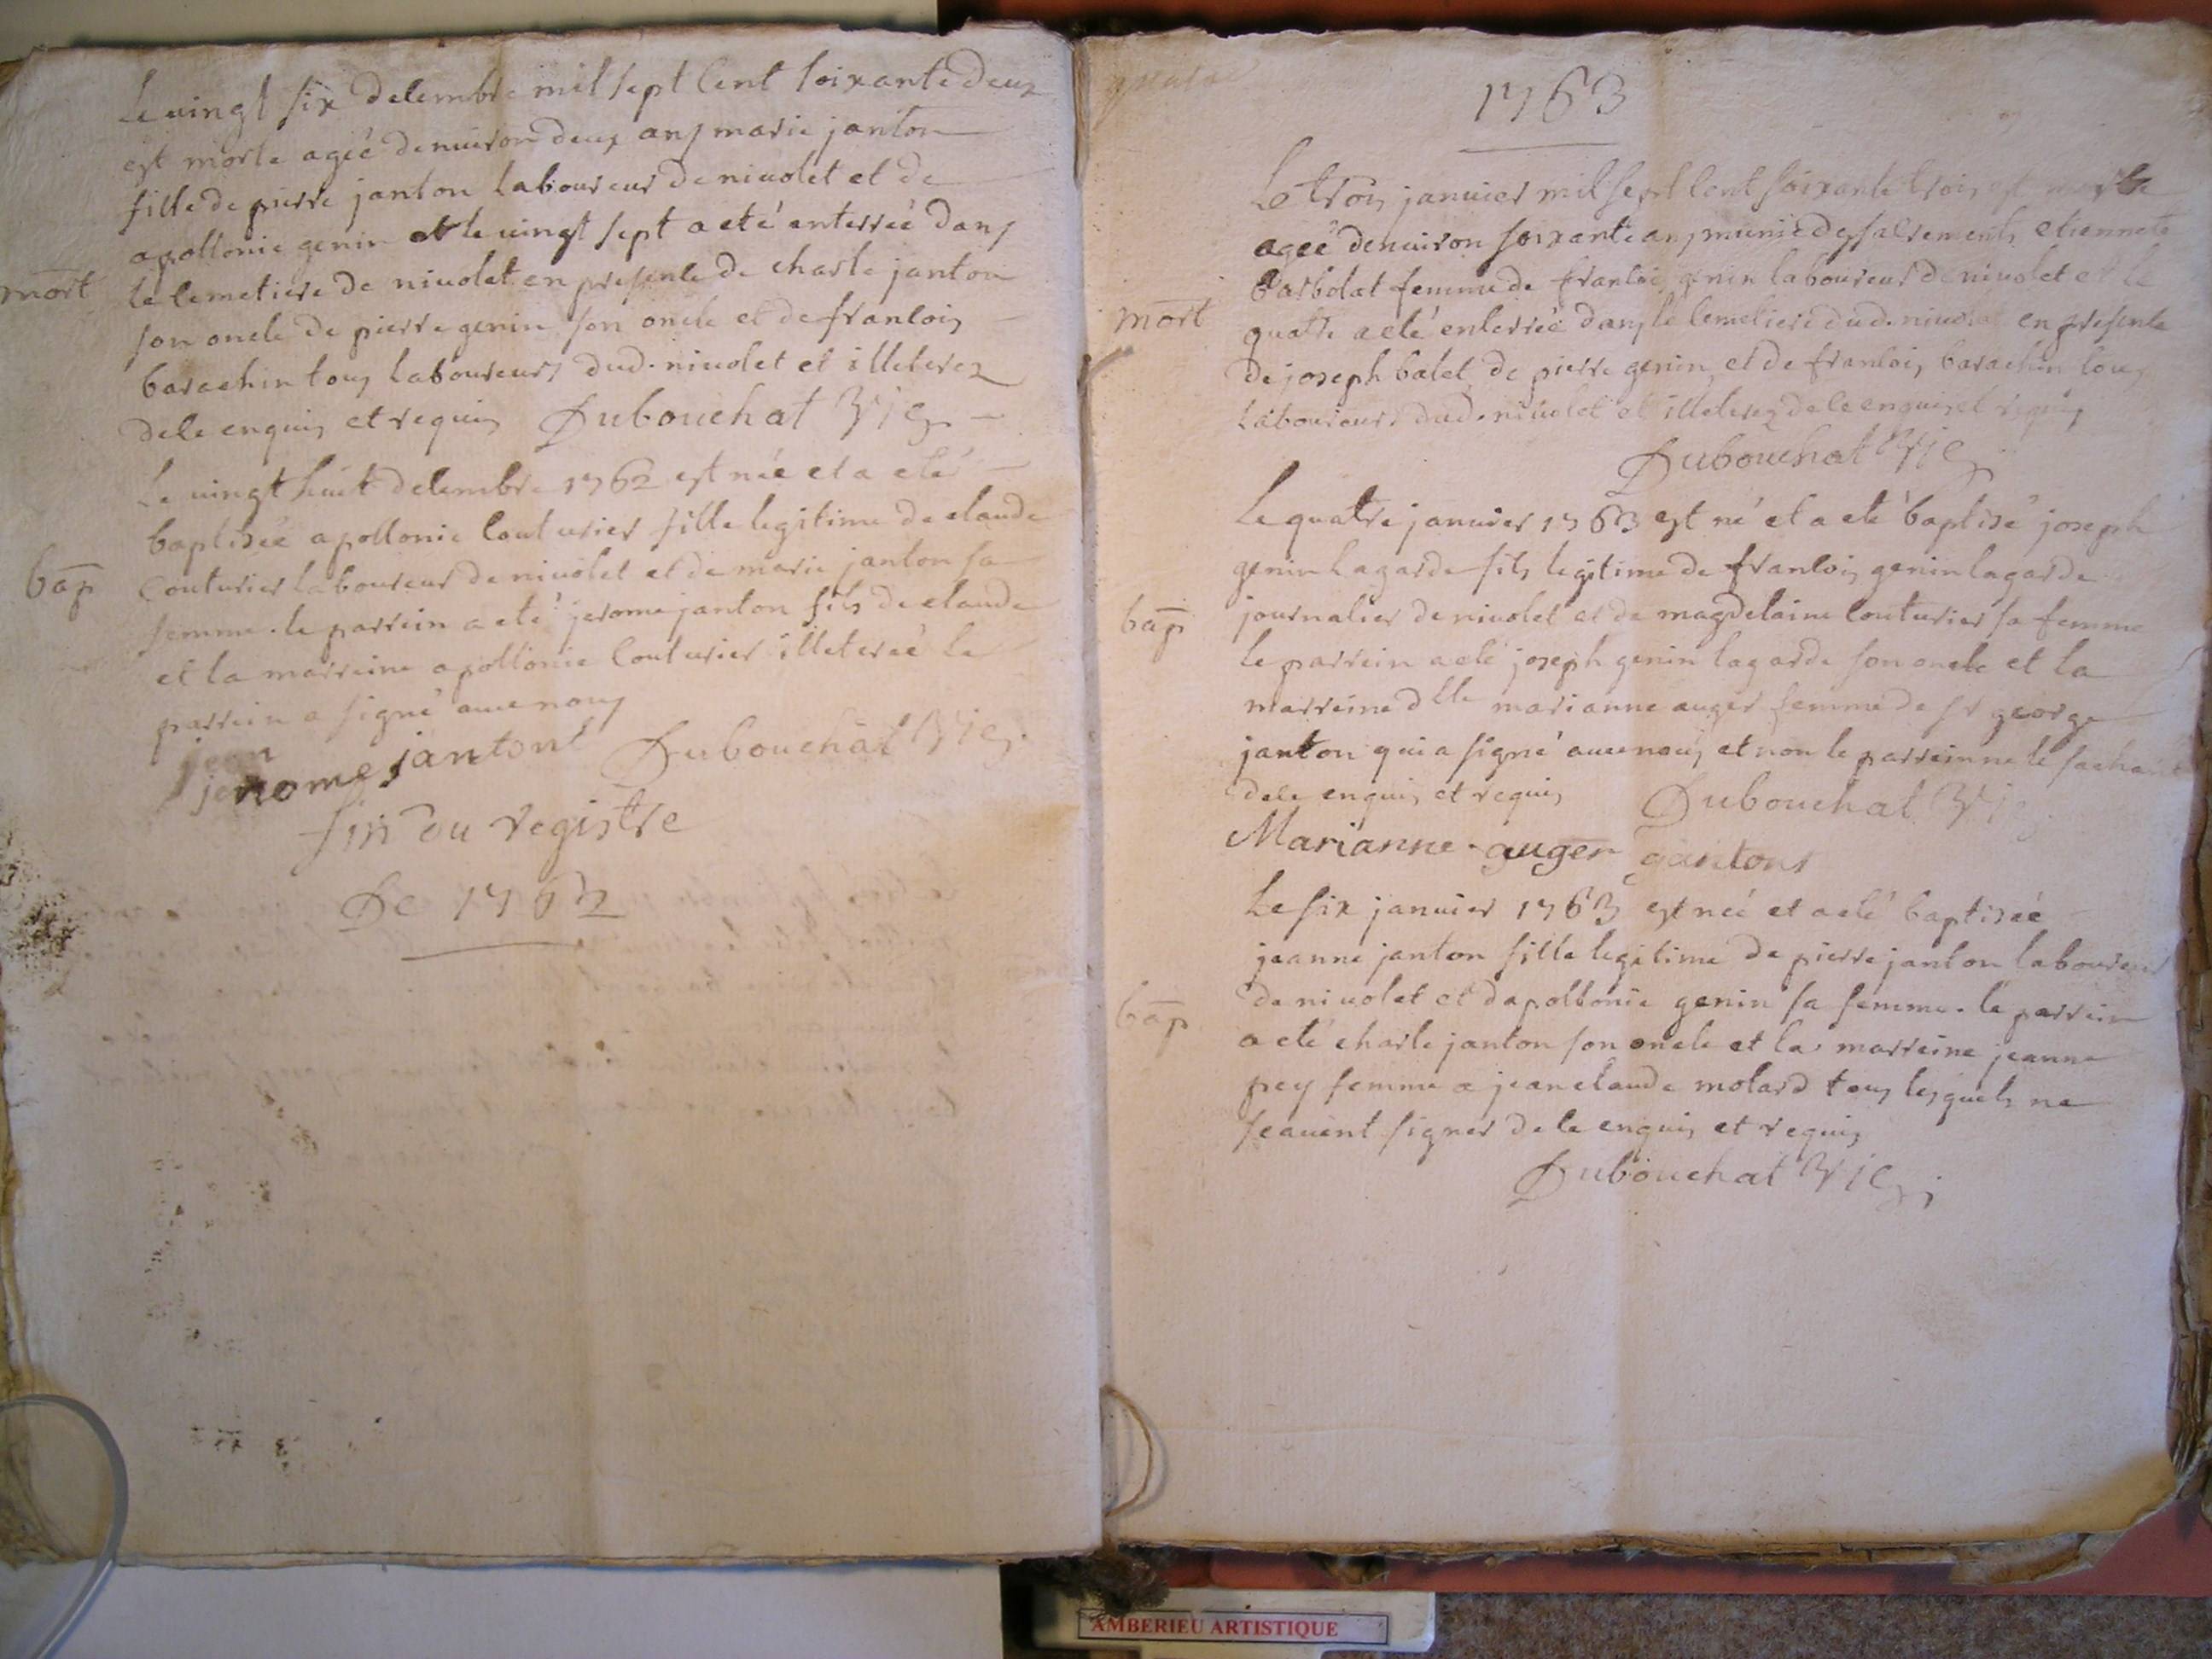 Le vingt six decembre mil sept cent soixante deux
est morte ageé denuiron deux ans marie janton
fille de pierre janton laboureur de niuolet et de
apollonie genin et le vingt sept a eté enterreé dans
mort
le cemetiere de niuolet en presence de charle janton
son oncle de pierre genin son oncle et de francois
barachin tous laboureurs dud. niuolet et illeterez
de ce enquis et requis Dubouchat vic
Le vingt huit decembre 1762 est neé et a eté
baptiseé apollonie couturier fille legitime de claude
bap
Couturier laboureur de niuolet et de marie janton sa
femme. le parrein a eté jerome janton fils de claude
et la marreine apollonie Couturier illetereé le
parrein a signé auec nous
jean
jerome jantont Dubouchat vic
fin du registre
De 1762
1763
Le trois januier mil sept cent soixante trois est morte
ageé denuiron soixante ans munie des sacrements etiennete
barbolat femme de francois genin laboureur de niuolet et le
mort
quatre a eté enterreé dans le cemetiere dud. niuolet en presence
de joseph balet de pierre genin et de francois barachin tous
Laboureurs dud. niuolet et illeterez de ce enquis et requis
Dubouchat vic
Le quatre januier 1763 est né et a eté baptisé joseph
genin Lagarde fils legitime de francois genin lagarde
bap
journalier de niuolet et de magdelaine couturier sa femme
le parrein a eté joseph genin lagarde son oncle et la
marreine dlle marianne auger femme de sr george
janton qui a signé auec nous et non le parrein ne le sachant
de ce enquis et requis Dubouchat vic
Marianne auger gantont
Le six januier 1763 est neé et a eté baptiseé
jeanne janton fille legitime de pierre janton laboureur
bap
de niuolet et dapollonie genin sa femme. le parrein
a eté charle janton son oncle et la marreine jeanne
pey femme a jean claude molard tous lesquels ne
scauent signer de ce enquis et requis
Dubouchat vic
AMBERIEU ARTISTIQUE